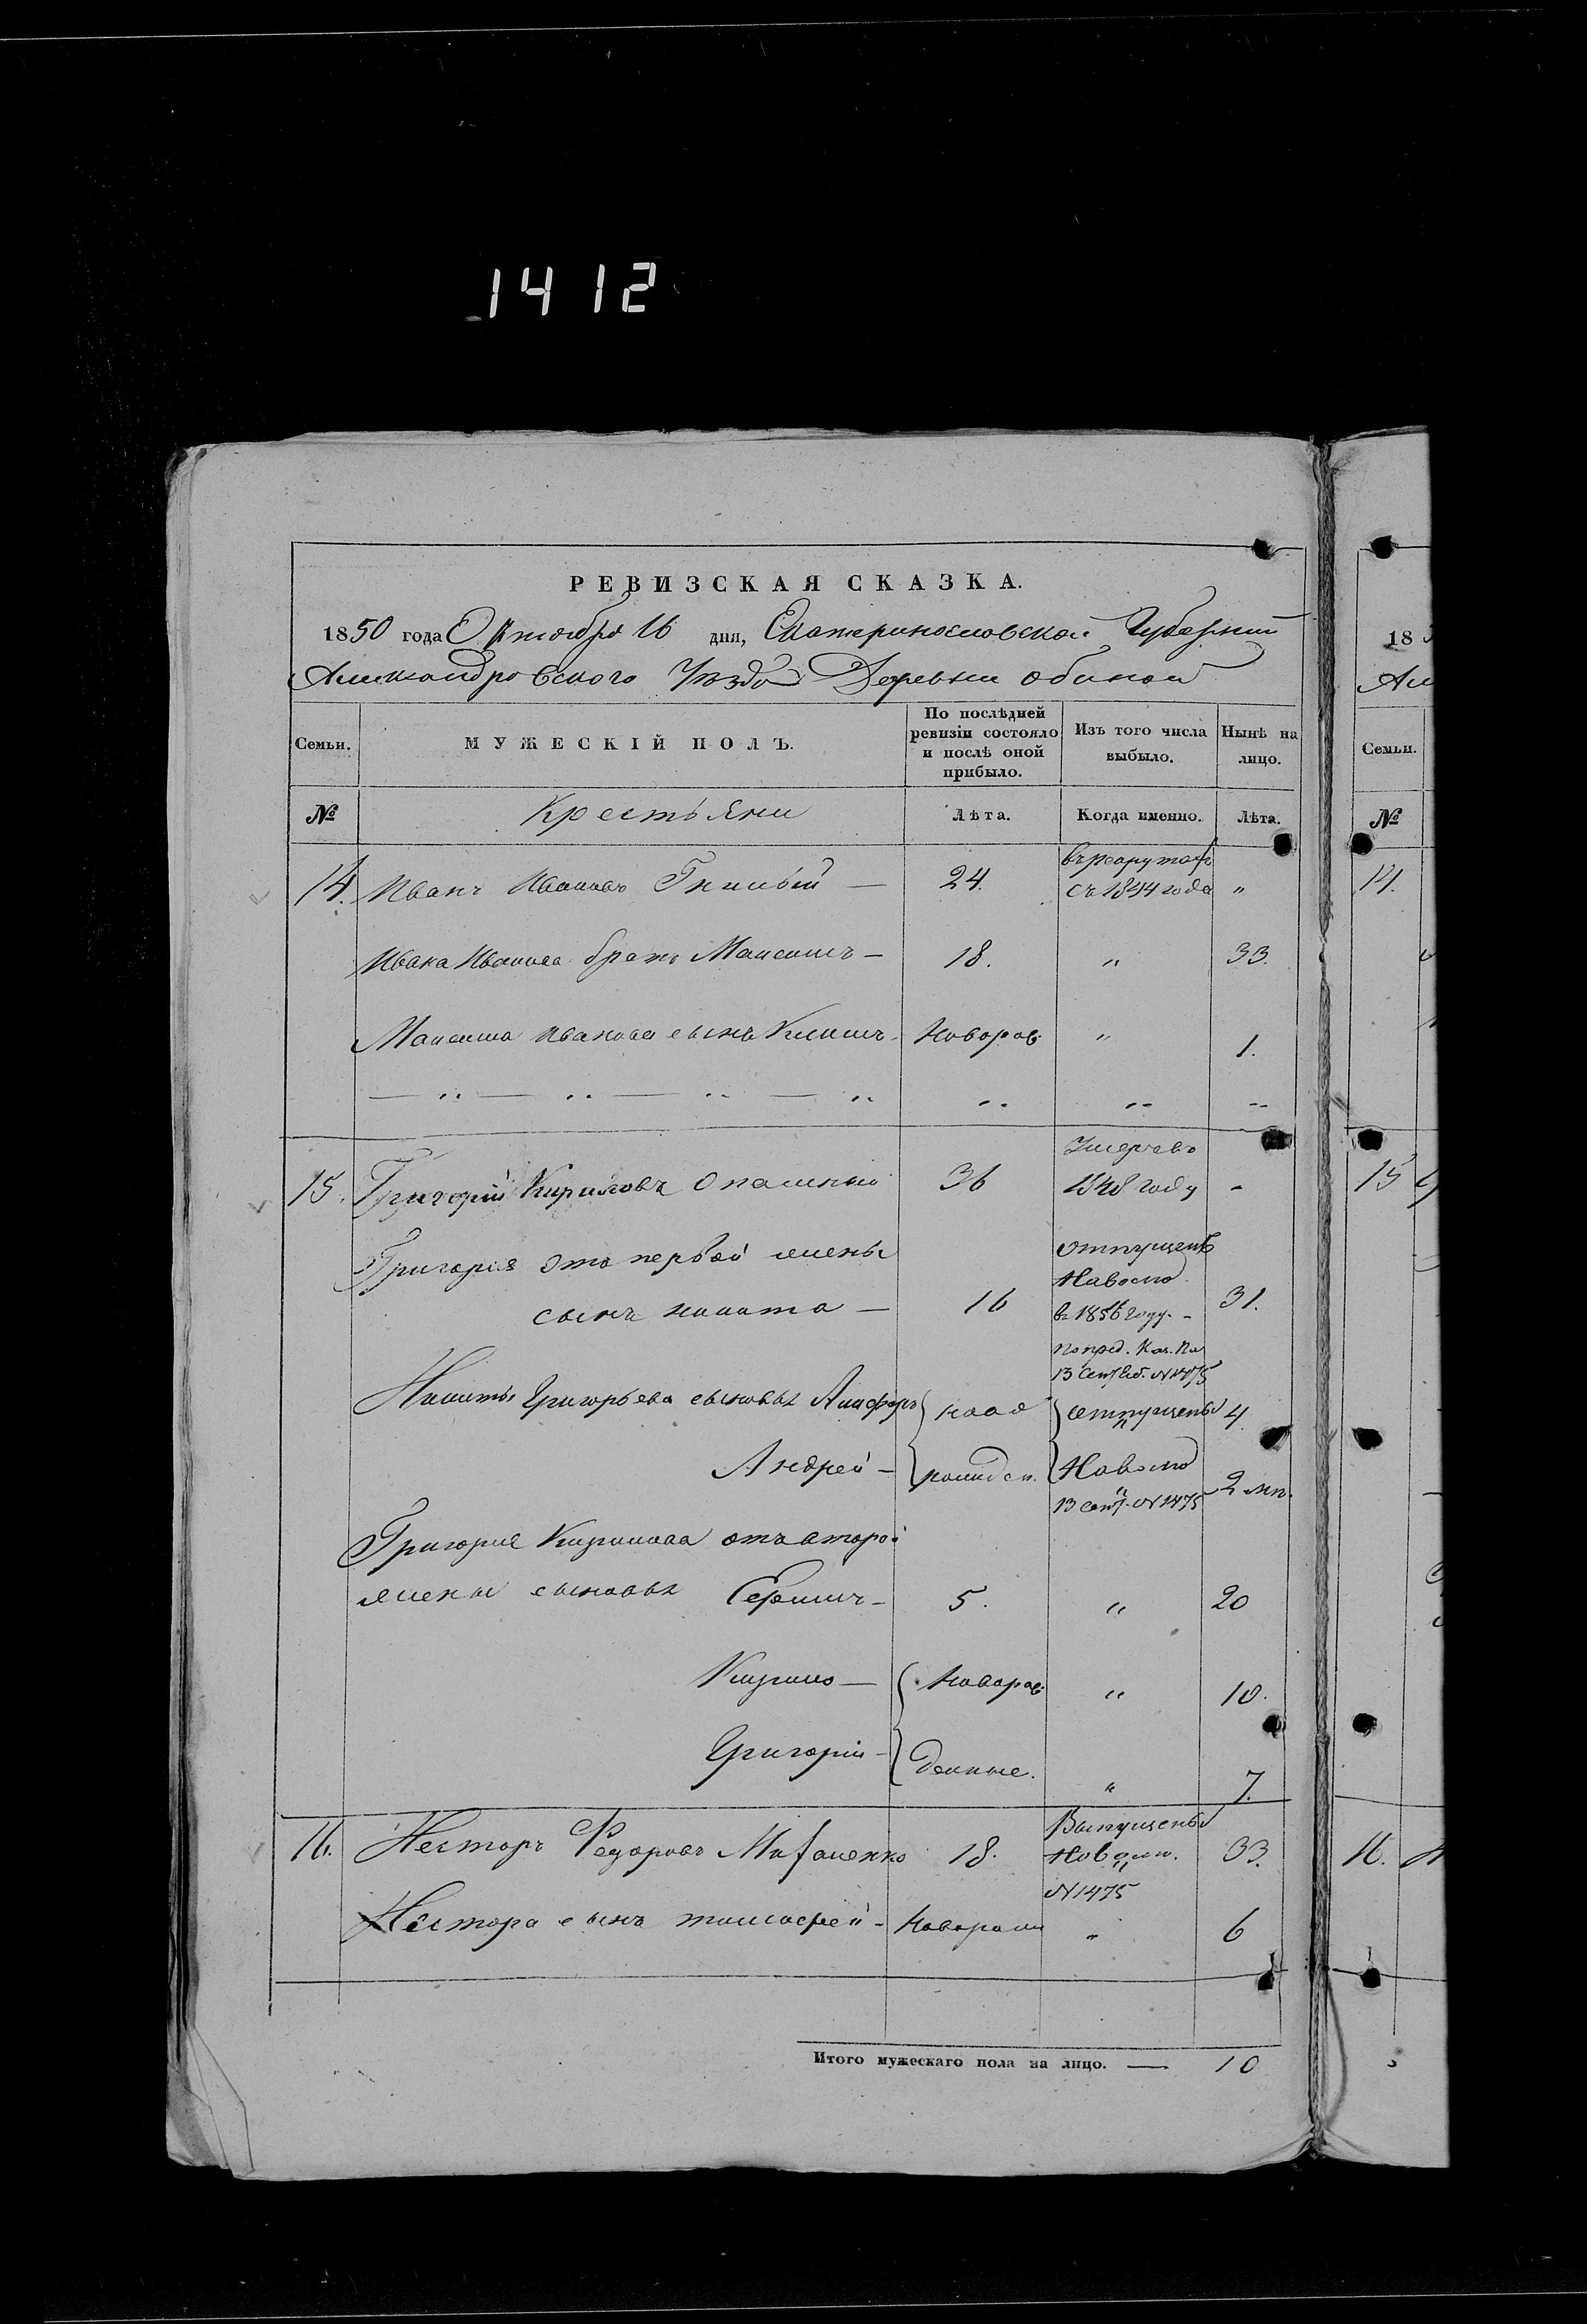 1412
РЕВИЗСКАЯ СКАЗКА.
1850 года Октября 16 дня, Екатеринославской Губернии
Александровского Уѣзда Деревни
Семьи.
МУЖЕСКІЙ ПОЛЪ.
По послѣдней ревизіи состояло и послѣ оной прибыло.
Изъ того числа выбыло.
Нынѣ на лицо.
№
Крестьяни
Лѣта.
Когда именно.
Лѣта.
14. Иванъ Ивановъ Гнилый — 24. въ рекрутахъ съ 1844 года "
Ивана Иванова братъ Максимъ — 18. " 33.
Максима Иванова сынъ Климъ - Новорож " 1.
15. Григорій Кириловъ Опашный 36 Умеръ въ 1848 году -
Григорія отъ первой жены
сынъ никита — 16 отпущенъ Наволю в 1850 году. - 31.
По пред. Каз. Па
13 Сентяб. N 1475
Никиты Григорьева сыновья ново отпущены 4
Андрей - рожден. Наволю 2 мц.
13 сент. N 1475
Григорія Кирилова отъ второй
жены сыновья Ефимъ - 5. " 20
Кирило — Новорож " 10.
Григорій - денные. " 7.
16. Несторъ Федоровъ 18. Выпущены Наволю. 33.
N 1475
Нестора сынъ тимофей - Новорожд " 6
Итого мужескаго пола на лицо. — 10
18
Ал
Семьи.
№
14.
15
16. Н